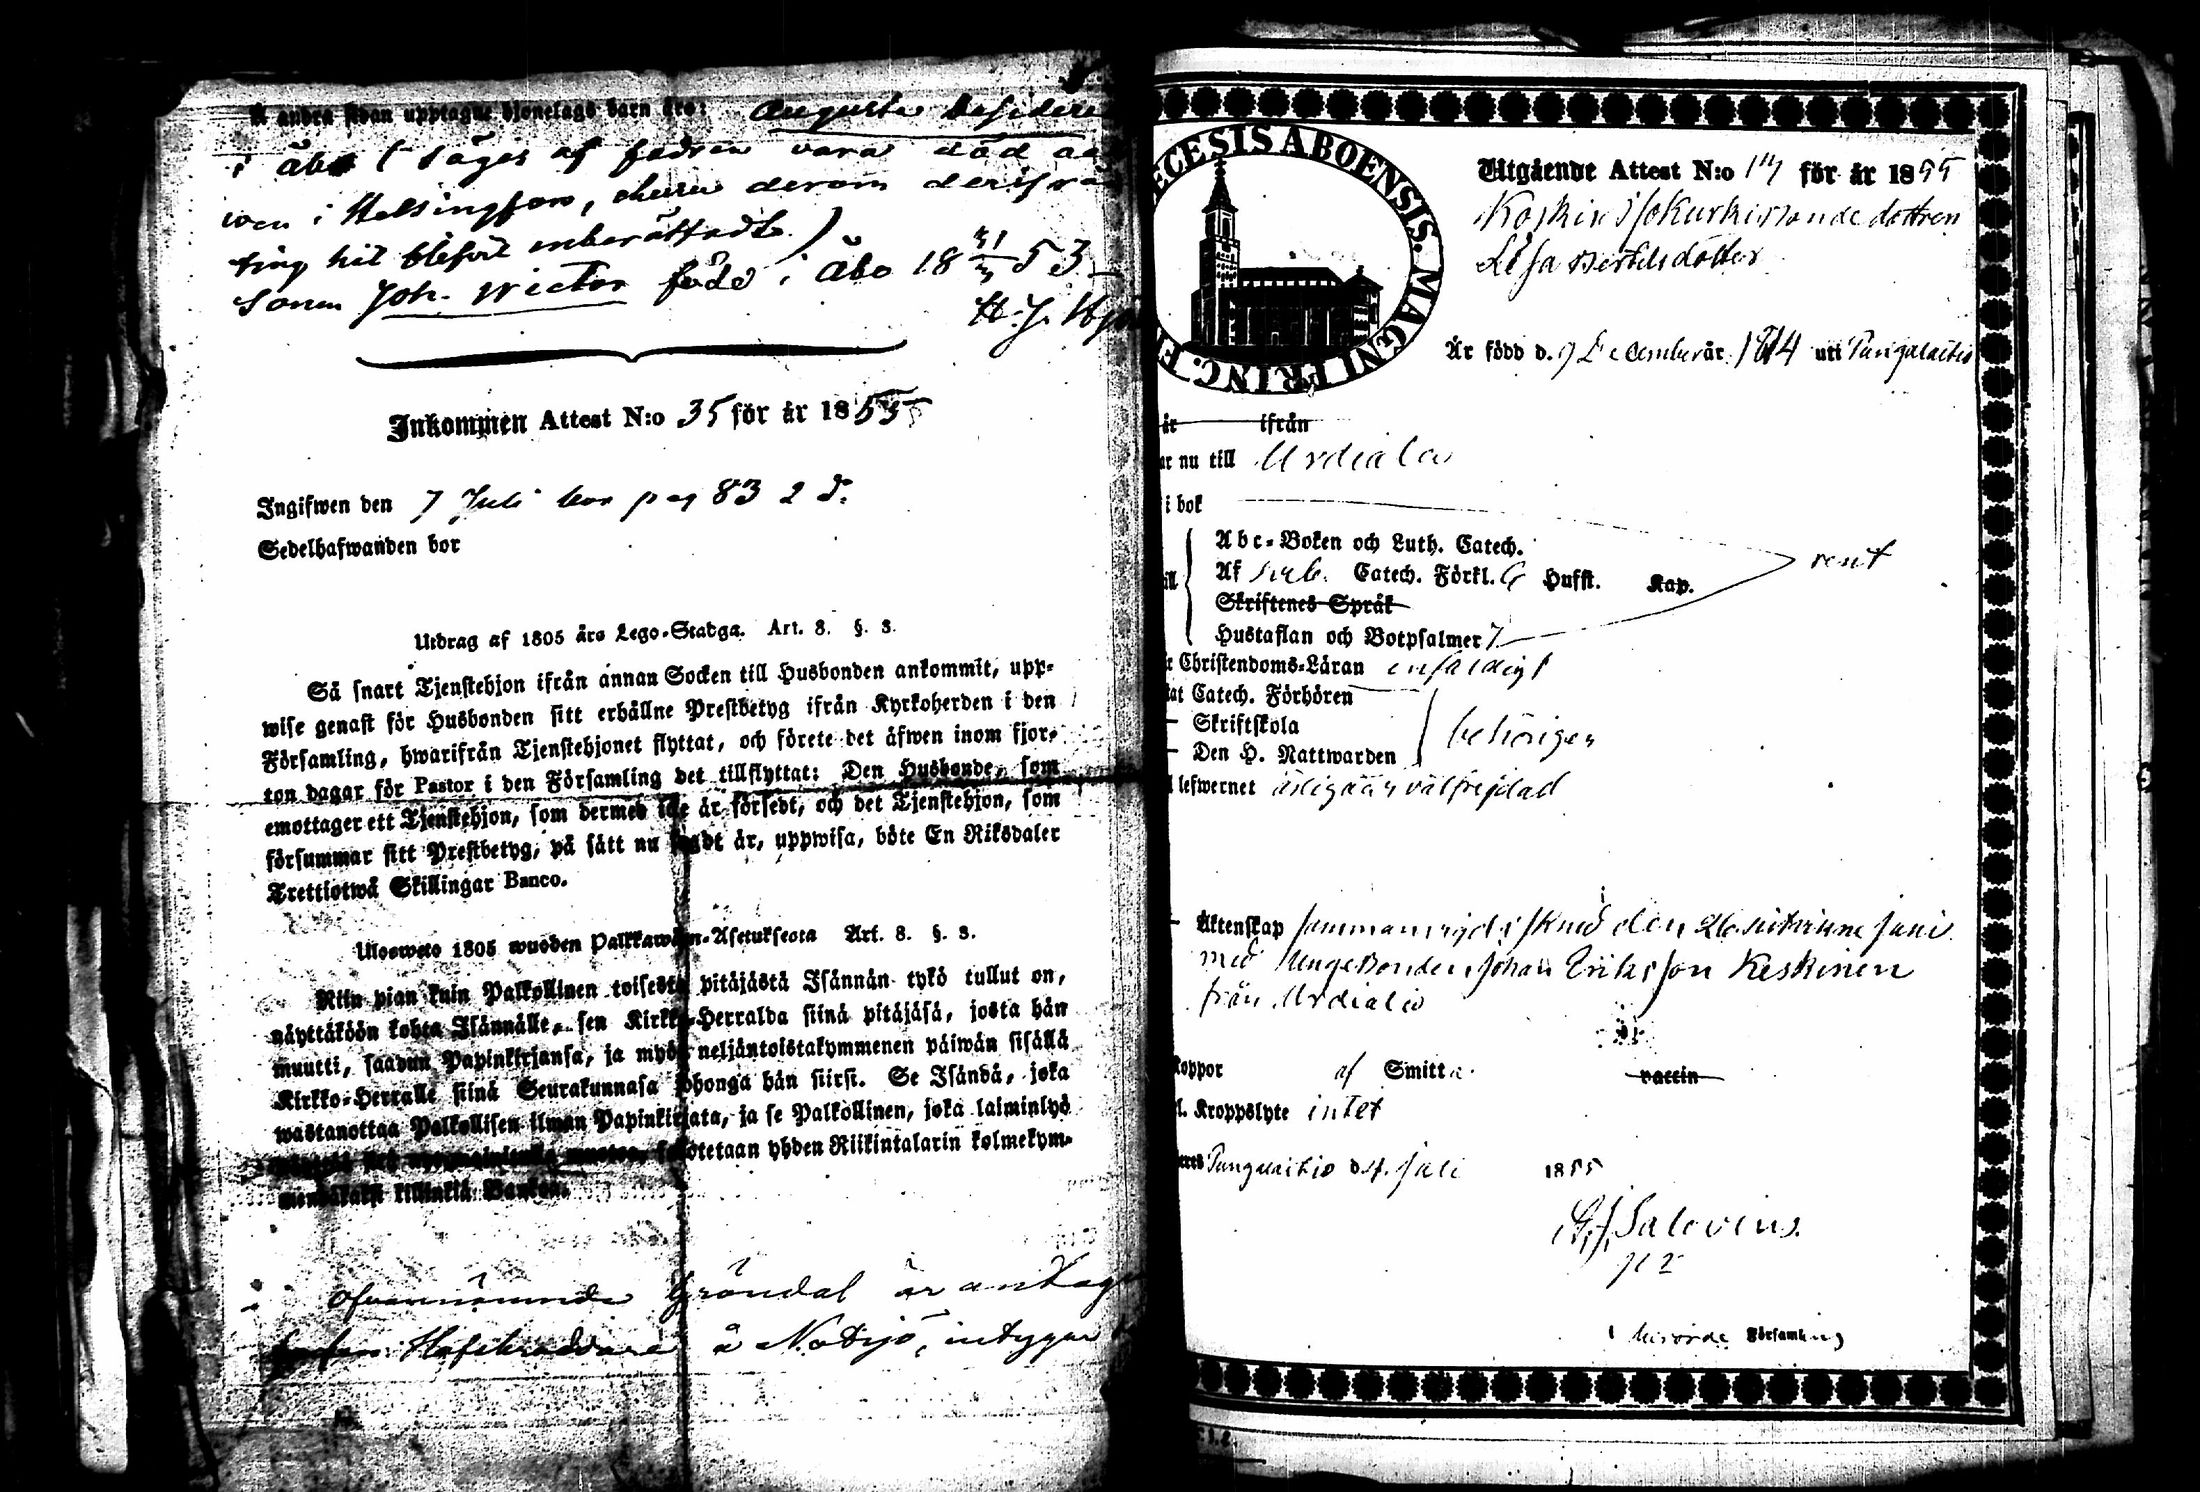 Å andra sidan upptagne hjonelags barn äro: Augusta
i Åbo (säges af fadren vara död
i Helsingfors, deraom
ting hit blifvit inberättadt.)
Sonen Joh. Wictor född i Åbo 18 31/3 53
H. J.
Inkommen Attest N:o 35 för år 1855
Ingifwen den 7 Juli bor pag 83 2 d.
Sedelhafwanden bor
Utdrag af 1805 års Lego-Stadga. Art. 8. §. 3.
Så snart Tjenstehjon ifrån annan Socken till Husbonden ankommit, upp-
wise genast för Husbonden sitt erhållne Prestbetyg ifrån Kyrkoherden i den
Församling, hwarifrån Tjenstehjonet flyttat, och förete det äfwen inom fjor-
ton dagar för Pastor i den Församling det tillflyttat: Den Husbonde, som
emottager ett Tjenstehjon, som dermed icke är försedt, och det Tjenstehjon, som
försummar sitt Prestbetyg, på sätt nu sagdt är, uppwisa, böte En Riksdaler
Trettiotwå Skillingar Banco.
Ulosweto 1805 wuoden Palkkawäen-Asetuksesta Art. 8. §. 3.
Niin pian kuin Palkollinen toisesta pitäjästä Isännän tykö tullut on,
näyttäköön kohta Isännälle, sen Kirkko-Herralda siinä pitäjäsä, josta hän
muutti, saadun Papinkirjansa, ja myös neljäntoistakymmenen päiwän sisällä
Kirkko-Herralle siinä Seurakunnasa johonga hän siirsi. Se Isändä, joka
wastanottaa Palkollisen ilman Papinkirjata, ja se Palkollinen, joka laiminlyö
sakotetaan yhden Riikintalarin kolmekym-
mendäkaksi killinkiä Bankoa.
Ofvannämnde Gröndal är antag
Hofslagare å Notsjö, intygar
ECESIS ABOENSIS. MAGNI PRINC. FI
Utgående Attest N:o 14 för år 1855
dottren
Lisa Bertelsdotter
Är född d. 9 December år 1814 uti Pungalaitio
är ifrån
ar nu till Urdiala
i bok
Abc-Boken och Luth. Catech.
Af Sveb. Catech. Förkl. 6 Hufst. Kap. rent
ill Skriftenes Språk
Hustaflan och Botpsalmer 7
Christendoms-Läran enfaldigt
tat Catech. Förhören
Skriftskola behörigen
Den H. Nattwarden
lefwernet välfrejdad
Äktenskap sammanvigd den Juni
med Unge Bonden Johan Eriksson Keskinen
från Urdiala
koppor af Smitta vaccin
l. Kroppslyte intet
Pungalaitio d. 4. Juli 1855
Salovius.
berörde Församling